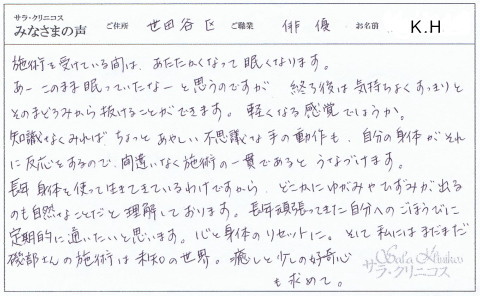 サラ・クリニコス
みなさまの声 ご住所 世田谷区 ご職業 俳優 お名前 K.H
施術を受けている間は、あたたかくなって眠くなります。
あーこのまま眠っていたなーと思うのですが 終る後は気持ちよくすっきりと
そのまどろみから抜けることができます。軽くなる感覚でしょうか。
知識なくみれば、ちょっとあやしい不思議な手の動作も、自分の身体がそれ
に反応をするので、間違いなく施術の一貫であると うなづけます。
長年身体を使って生きてきているわけですから、どこかにゆがみやひずみが出る
のも自然なことだと理解しております。長年頑張ってきた自分へのごほうびに
定期的に通いたいと思います。心と身体のリセットに。そして私にはまだまだ
磯部さんの施術は未知の世界。癒しと少しの好奇心
も求めて。
Sala Klinikos
サラ・クリニコス